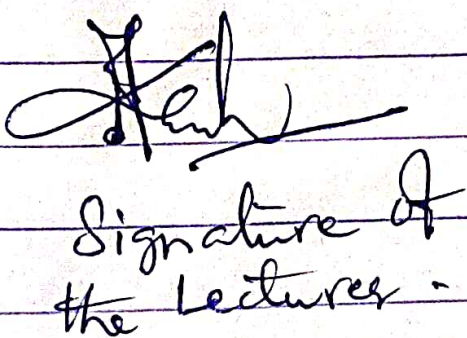 Signature of
the Lecturer.